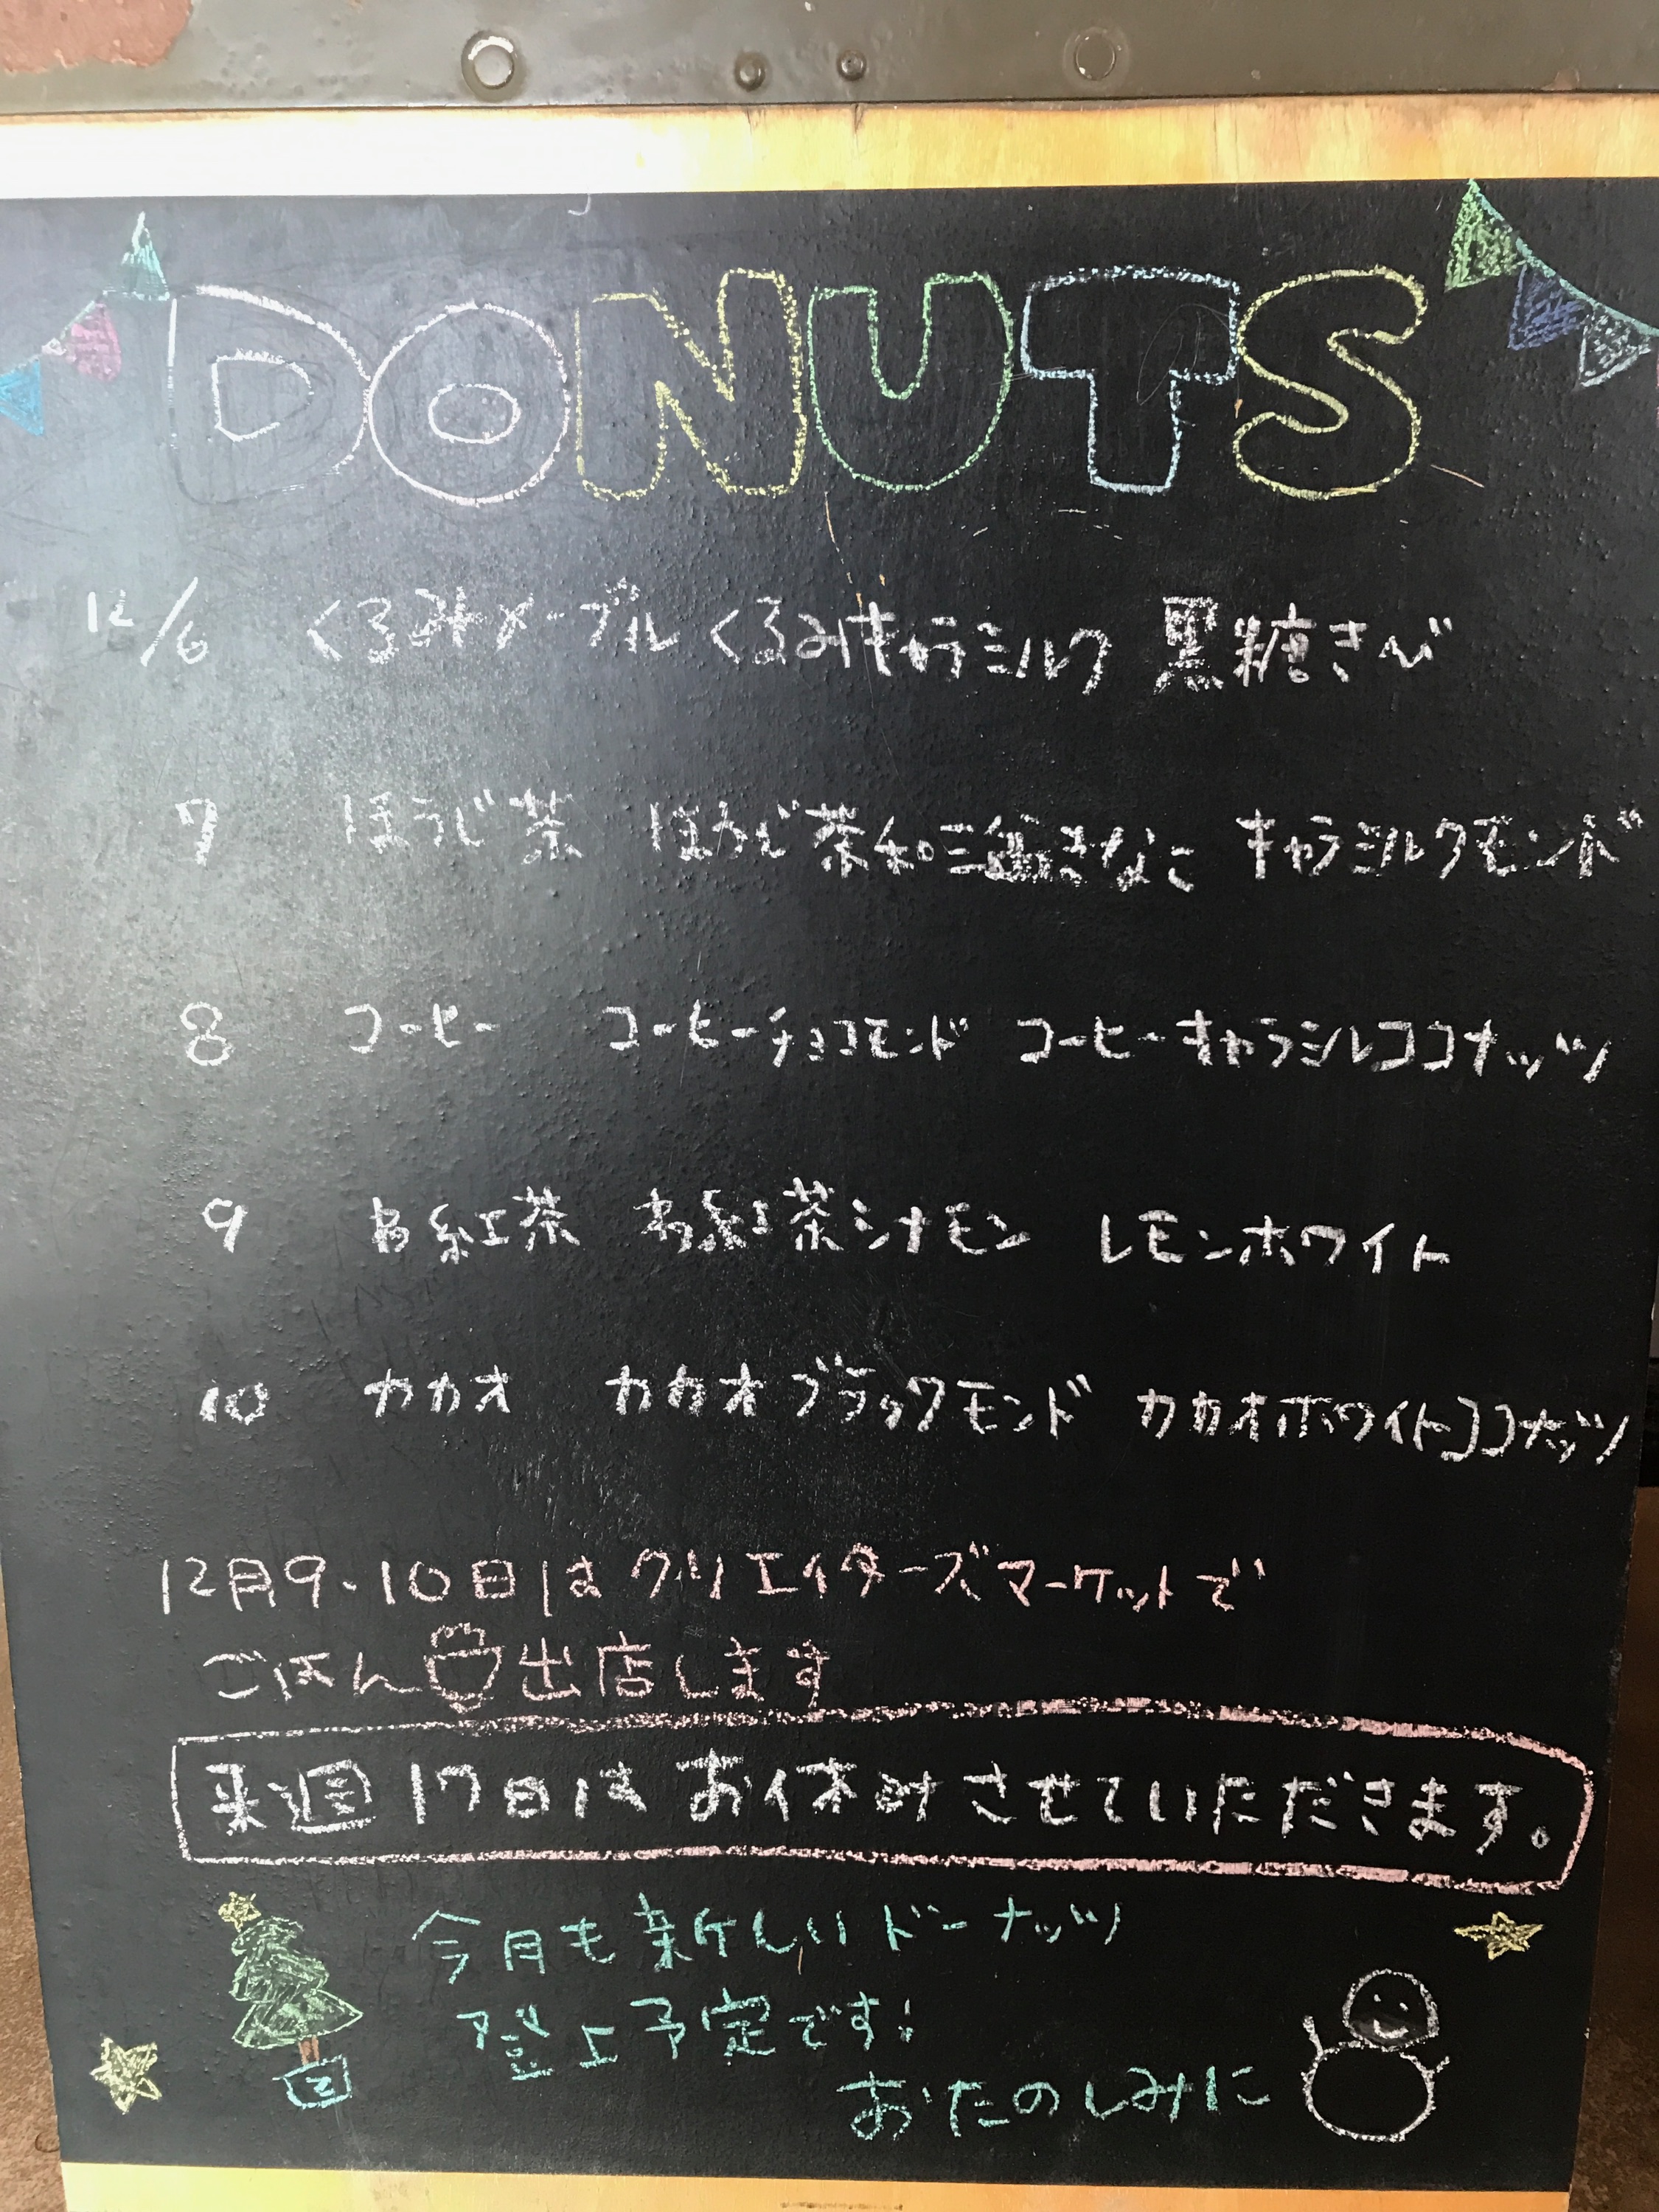 DONUTS
12/6 くるみメープル くるみキャラミルク 黒糖きび
7 ほうじ茶 ほうじ茶和三盆きなこ キャラミルクモンド
8 コーヒー コーヒーチョコモンド コーヒーキャラミルココナッツ
9 お紅茶 お紅茶シナモン レモンホワイト
10 カカオ カカオブラックモンド カカオホワイトココナッツ
12月9.10日はクリエイターズマーケットで
ごはん出店します
来週17日はお休みさせていただきます。
今月も新しいドーナッツ
登上予定です!
おたのしみに